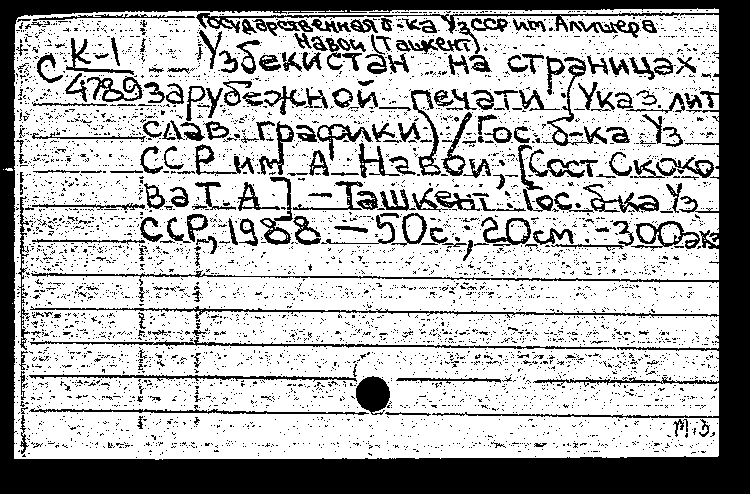 Государственная б-ка УзССР им. Алишера
Навои (Ташкент).
С К-1 Узбекистан на страницах
4789 зарубежной печати: (Указ. лит
слав. графики) / Гос. б-ка Уз
ССР им А Навои; [Сост Скоко-
ва Т.А]. - Ташкент: Гос. б-ка Уз
ССР, 1988. - 50с.; 20см. - 300экз
М.З.